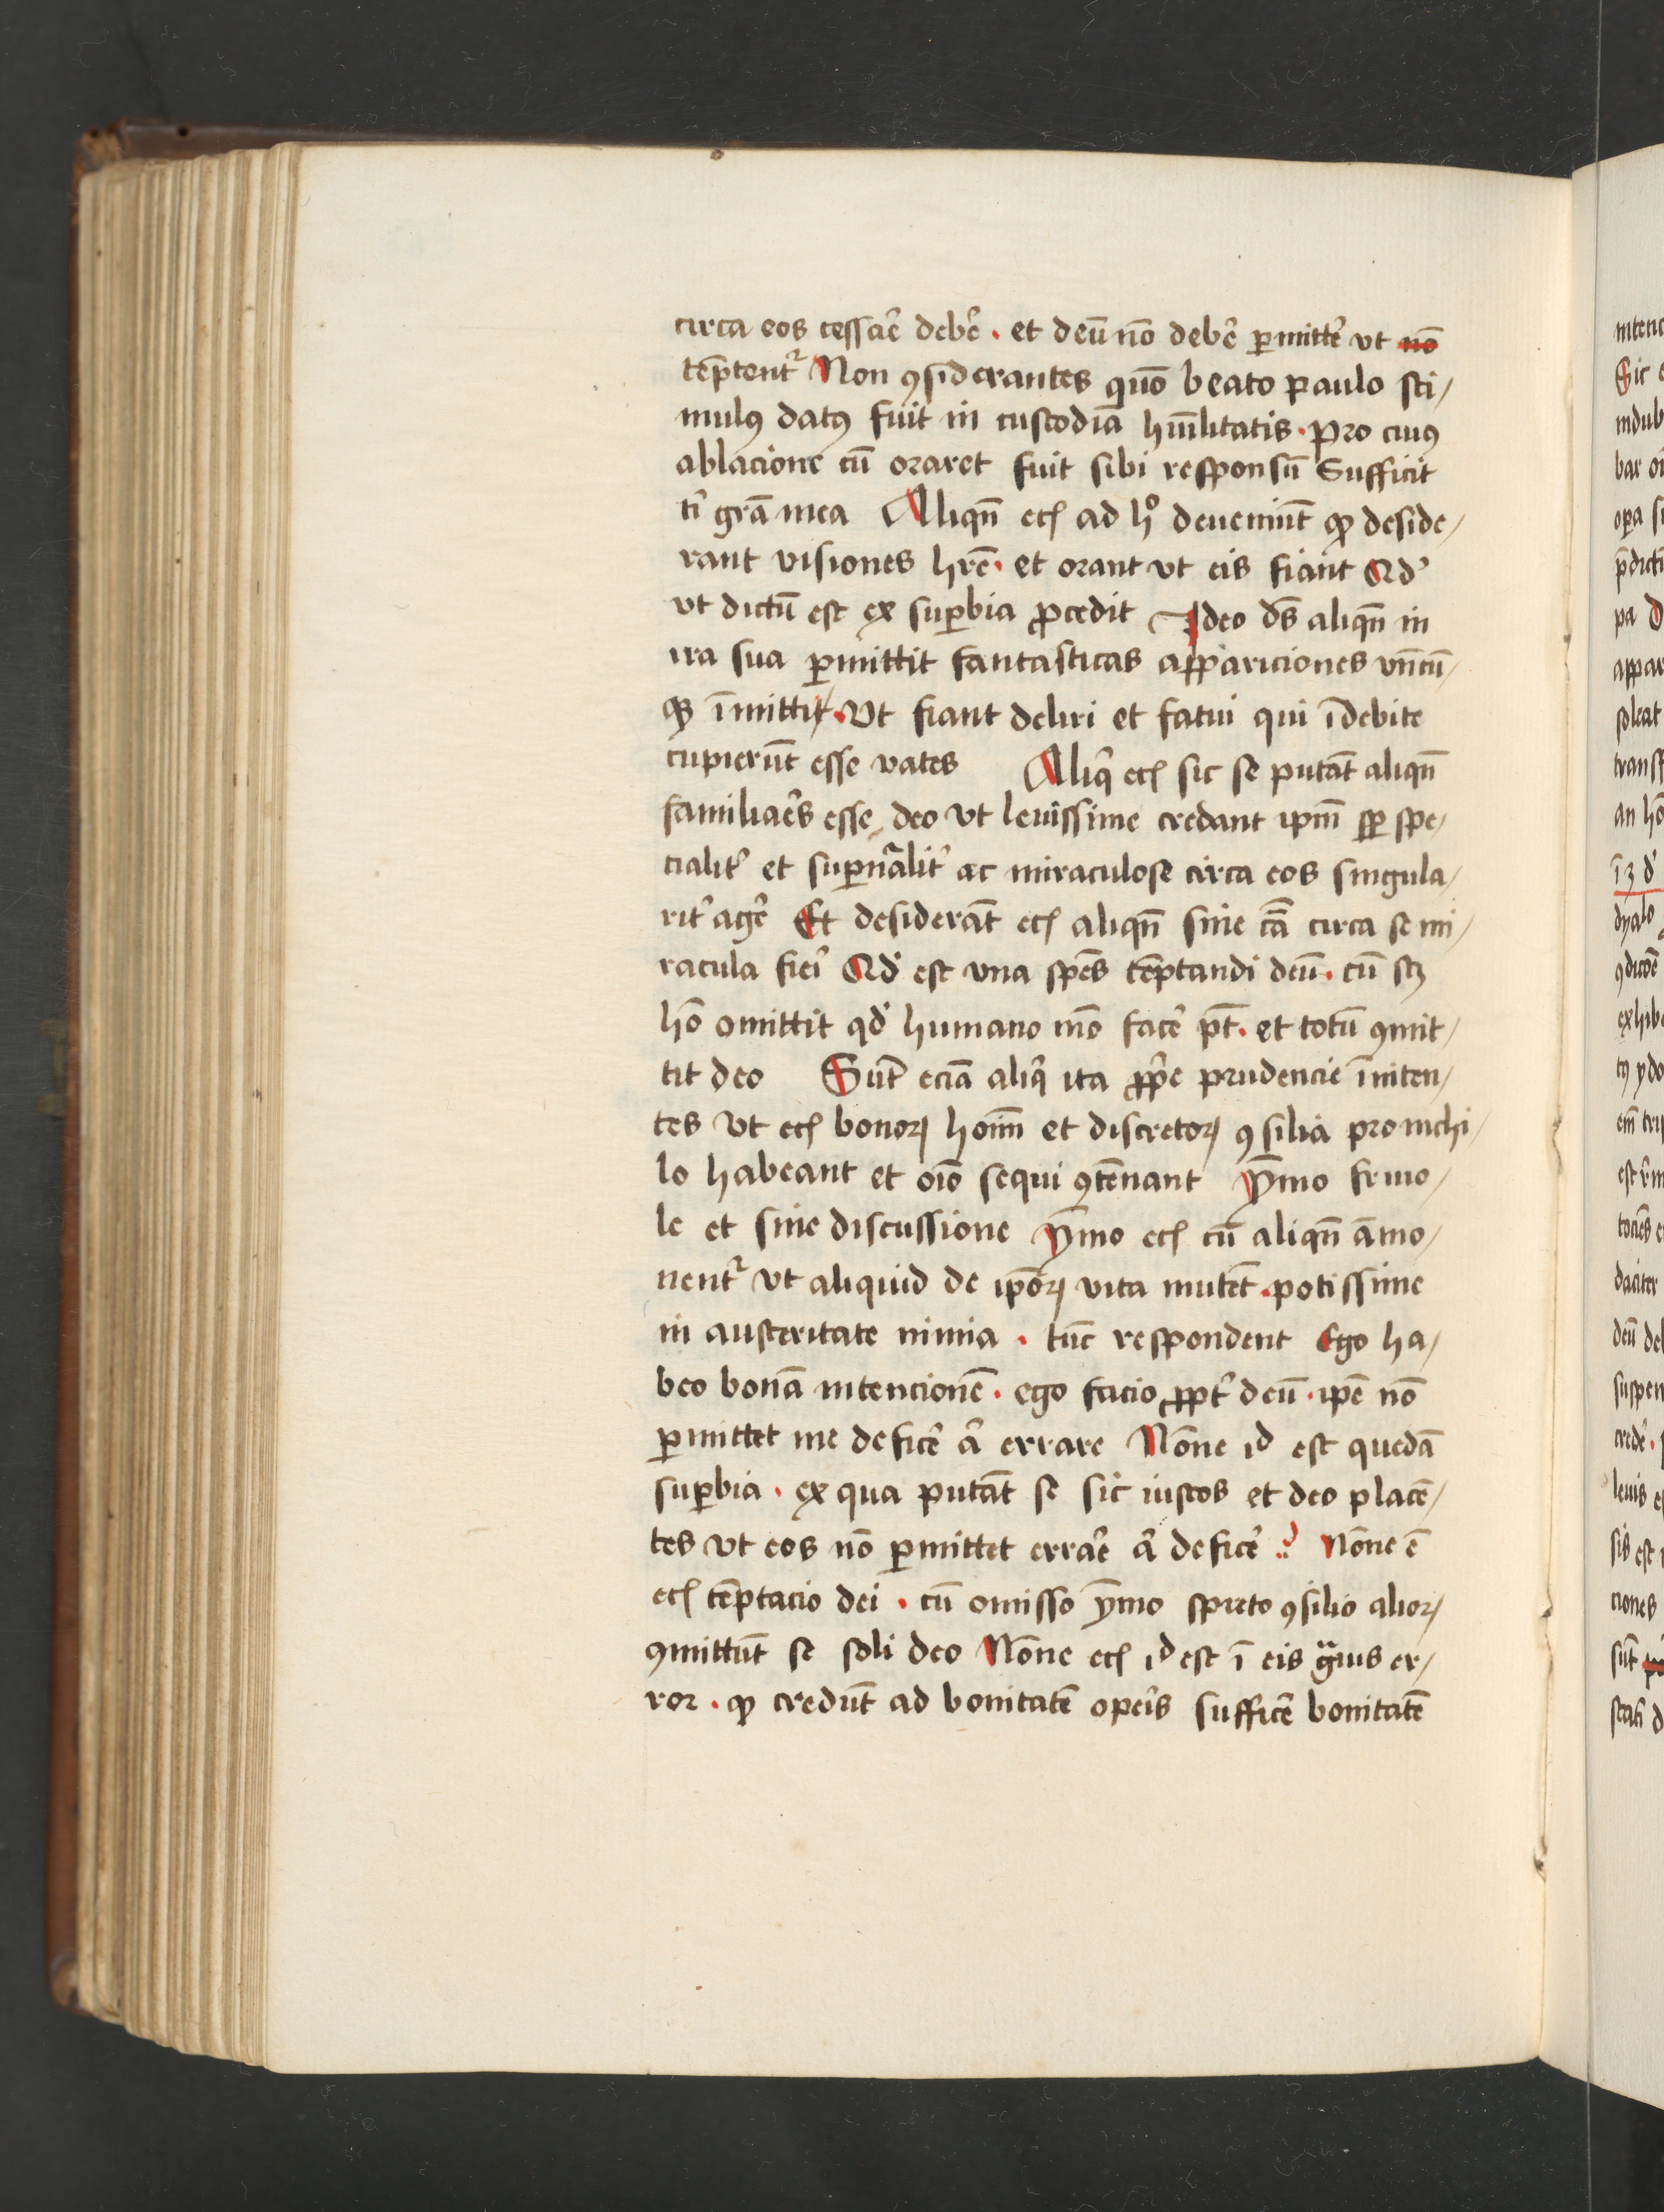 circa eos cessar̄e deber̄e · et deū nō deber̄e ꝑmitt̄e vt nō
tēptentᷣ Non ꝯsiderantes quō beato paulo sti/
mulꝰ datꝰ fuit in custodiā hūilitatis · pro cuiꝰ
ablacione cū oraret fuit sibi responsū Sufficit
t̄i gr̄a mea Aliqn̄ ecꝭ ad hͦ deueniūt ꝙ deside/
rant visiones hr̄e · et orant vt eis fiant Qd̓
vt dictū est ex suꝑbia ꝓcedit Ideo dn̄s aliqn̄ in
ira sua ꝑmittit fantasticas appariciones vn̄cū/
qꝫ īmitti · Vt fiant deliri et fatui qui īdebite
cupierūt esse vates Aliq̄ ecꝭ sic se putāt aliqn̄
familiar̄es esse deo vt leuissime credant ipm̄ sꝑ spe/
cialit̓ et suꝑnālit̓ ac miraculose circa eos singula/
rit̓ ager̄e Et desiderāt ecꝭ aliqn̄ sine cā circa se mi/
racula fier̄i Qd̓ est vna spēs tēptandi deū · cū scꝫ
hō omittit qd̓ humano mō facer̄e pt̄ · et totū ꝯmit/
tit deo Sūt eciā aliq̄ ita ꝓp̄e prudencie īniten/
tes vt ecꝭ bonoꝝ hoīm et discretoꝝ ꝯsilia pro nichi/
lo habeant et oīo sequi ꝯtēnant ȳmo friuo/
le et sine discussione ȳmo ecꝭ cū aliqn̄ āmo/
nentᷣ vt aliquid de ipōꝝ vita mutēt · potissime
in austeritate nimia · tūc respondent Ego ha/
beo bonā intencionē · ego facio ꝓpt̓ deū · ipē nō
ꝑmittet me deficer̄e a̓ errare Nōne id est quedā
suꝑbia · ex qua putāt se sic iustos et deo placē/
tes vt eos nō ꝑmittet errar̄e a̓ deficer̄e ? Nōne ē
ecꝭ tēptacio dei · cū omisso ȳmo spreto ꝯsilio alioꝝ
ꝯmittūt se soli deo Nōne ecꝭ id est ī eis gͣuis er/
ror · ꝙ credūt ad bonitatē oper̄is sufficer̄e bonitatē